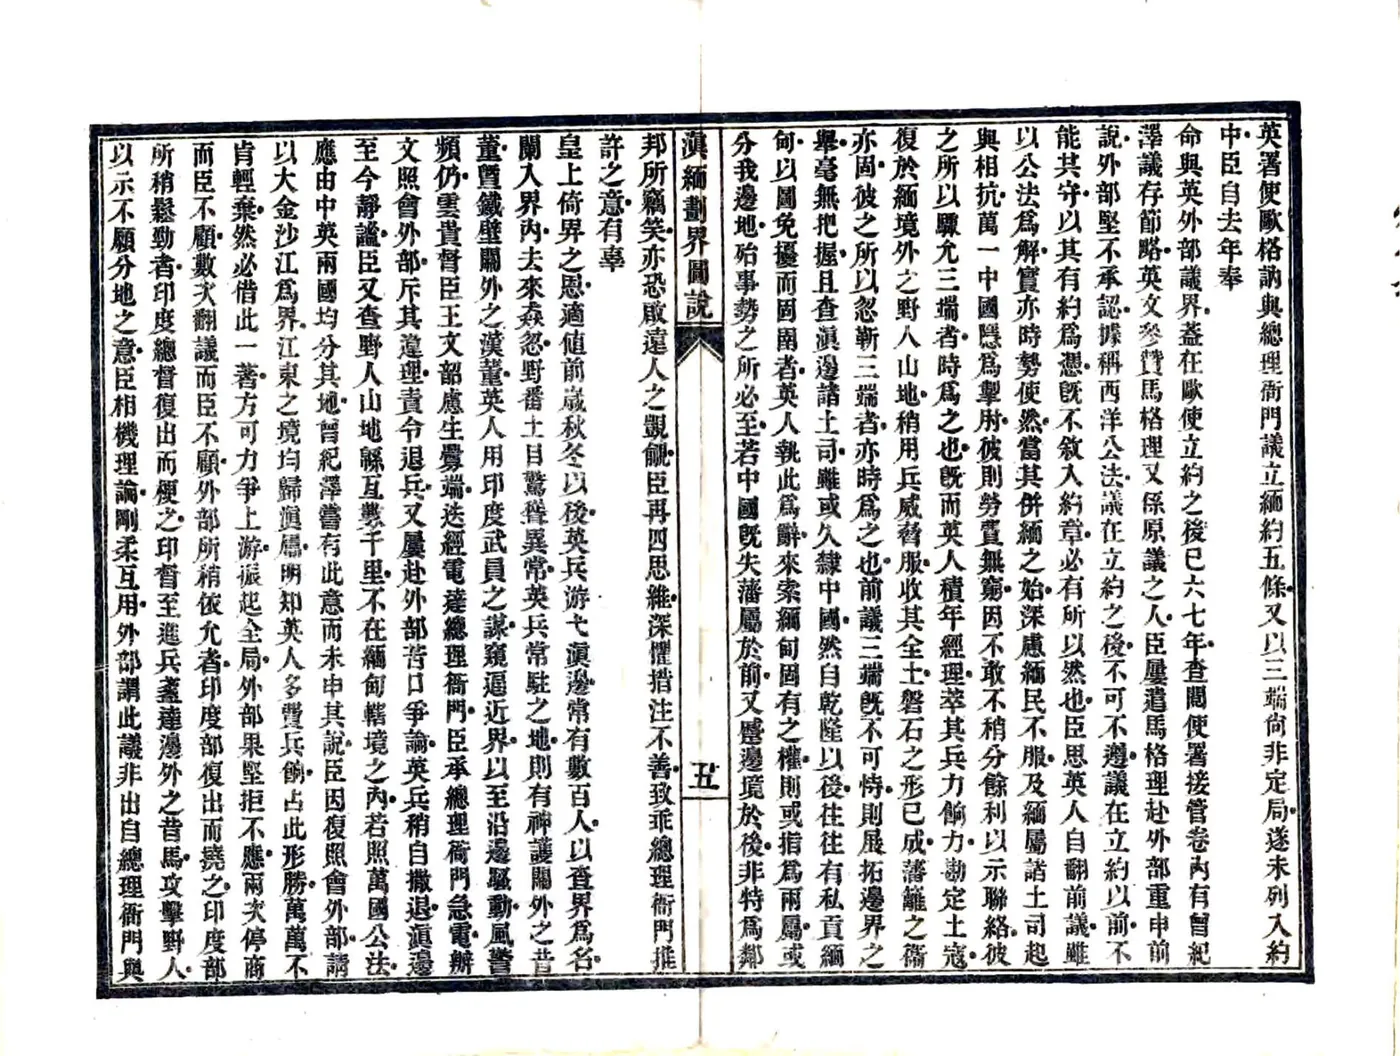 英署使歐格訥與總理衙門議立緬約五條又以三端尙非定局遂未列入約
中臣自去年奉
命與英外部議界葢在歐使立約之後已六七年查閱使署接管卷內有曾紀
澤議存節略英文參贊馬格理又係原議之人臣屢遣馬格理赴外部重申前
說外部堅不承認據稱西洋公法議在立約之後不可不遵議在立約以前不
能共守以其有約爲憑旣不敘入約章必有所以然也臣思英人自翻前議雖
以公法爲解實亦時勢使然當其併緬之始深慮緬民不服及緬屬諸土司起
與相抗萬一中國隱爲掣肘彼則勞費無窮因不敢不稍分餘利以示聯絡彼
之所以驟允三端者時爲之也旣而英人積年經理萃其兵力餉力勘定土寇
復於緬境外之野人山地稍用兵威脅服收其全土磐石之形已成藩籬之衞
亦固彼之所以忽靳三端者亦時爲之也前議三端旣不可恃則展拓邊界之
舉毫無把握且查滇邊諸土司雖或久隸中國然自乾隆以後往往有私貢緬
甸以圖免擾而固圉者英人執此爲辭來索緬甸固有之權則或指爲兩屬或
分我邊地殆事勢之所必至若中國旣失藩屬於前又蹙邊境於後非特爲鄰
滇緬劃界圖說
五
邦所竊笑亦恐啟遠人之覬覦臣再四思維深懼措注不善致乖總理衙門推
許之意有辜
皇上倚畀之恩適値前歲秋冬以後英兵游弋滇邊常有數百人以查界爲名
闌入界內去來猋忽野番土目驚聳異常英兵常駐之地則有神護關外之昔
董暨鐵壁關外之漢董英人用印度武員之謀窺逼近界以至沿邊騷動風警
頻仍雲貴督臣王文韶慮生釁端迭經電達總理衙門臣承總理衙門急電辦
文照會外部斥其違理責令退兵又屢赴外部苦口爭論英兵稍自撤退滇邊
至今靜謐臣又查野人山地緜亙數千里不在緬甸轄境之內若照萬國公法
應由中英兩國均分其地曾紀澤嘗有此意而未申其說臣因復照會外部請
以大金沙江爲界江東之境均歸滇屬明知英人多費兵餉占此形勝萬萬不
肯輕棄然必借此一著方可力爭上游振起全局外部果堅拒不應兩次停商
而臣不顧數次翻議而臣不顧外部所稍依允者印度部復出而撓之印度部
所稍鬆勁者印度總督復出而梗之印督至進兵盞達邊外之昔馬攻擊野人
以示不願分地之意臣相機理論剛柔互用外部謂此議非出自總理衙門與